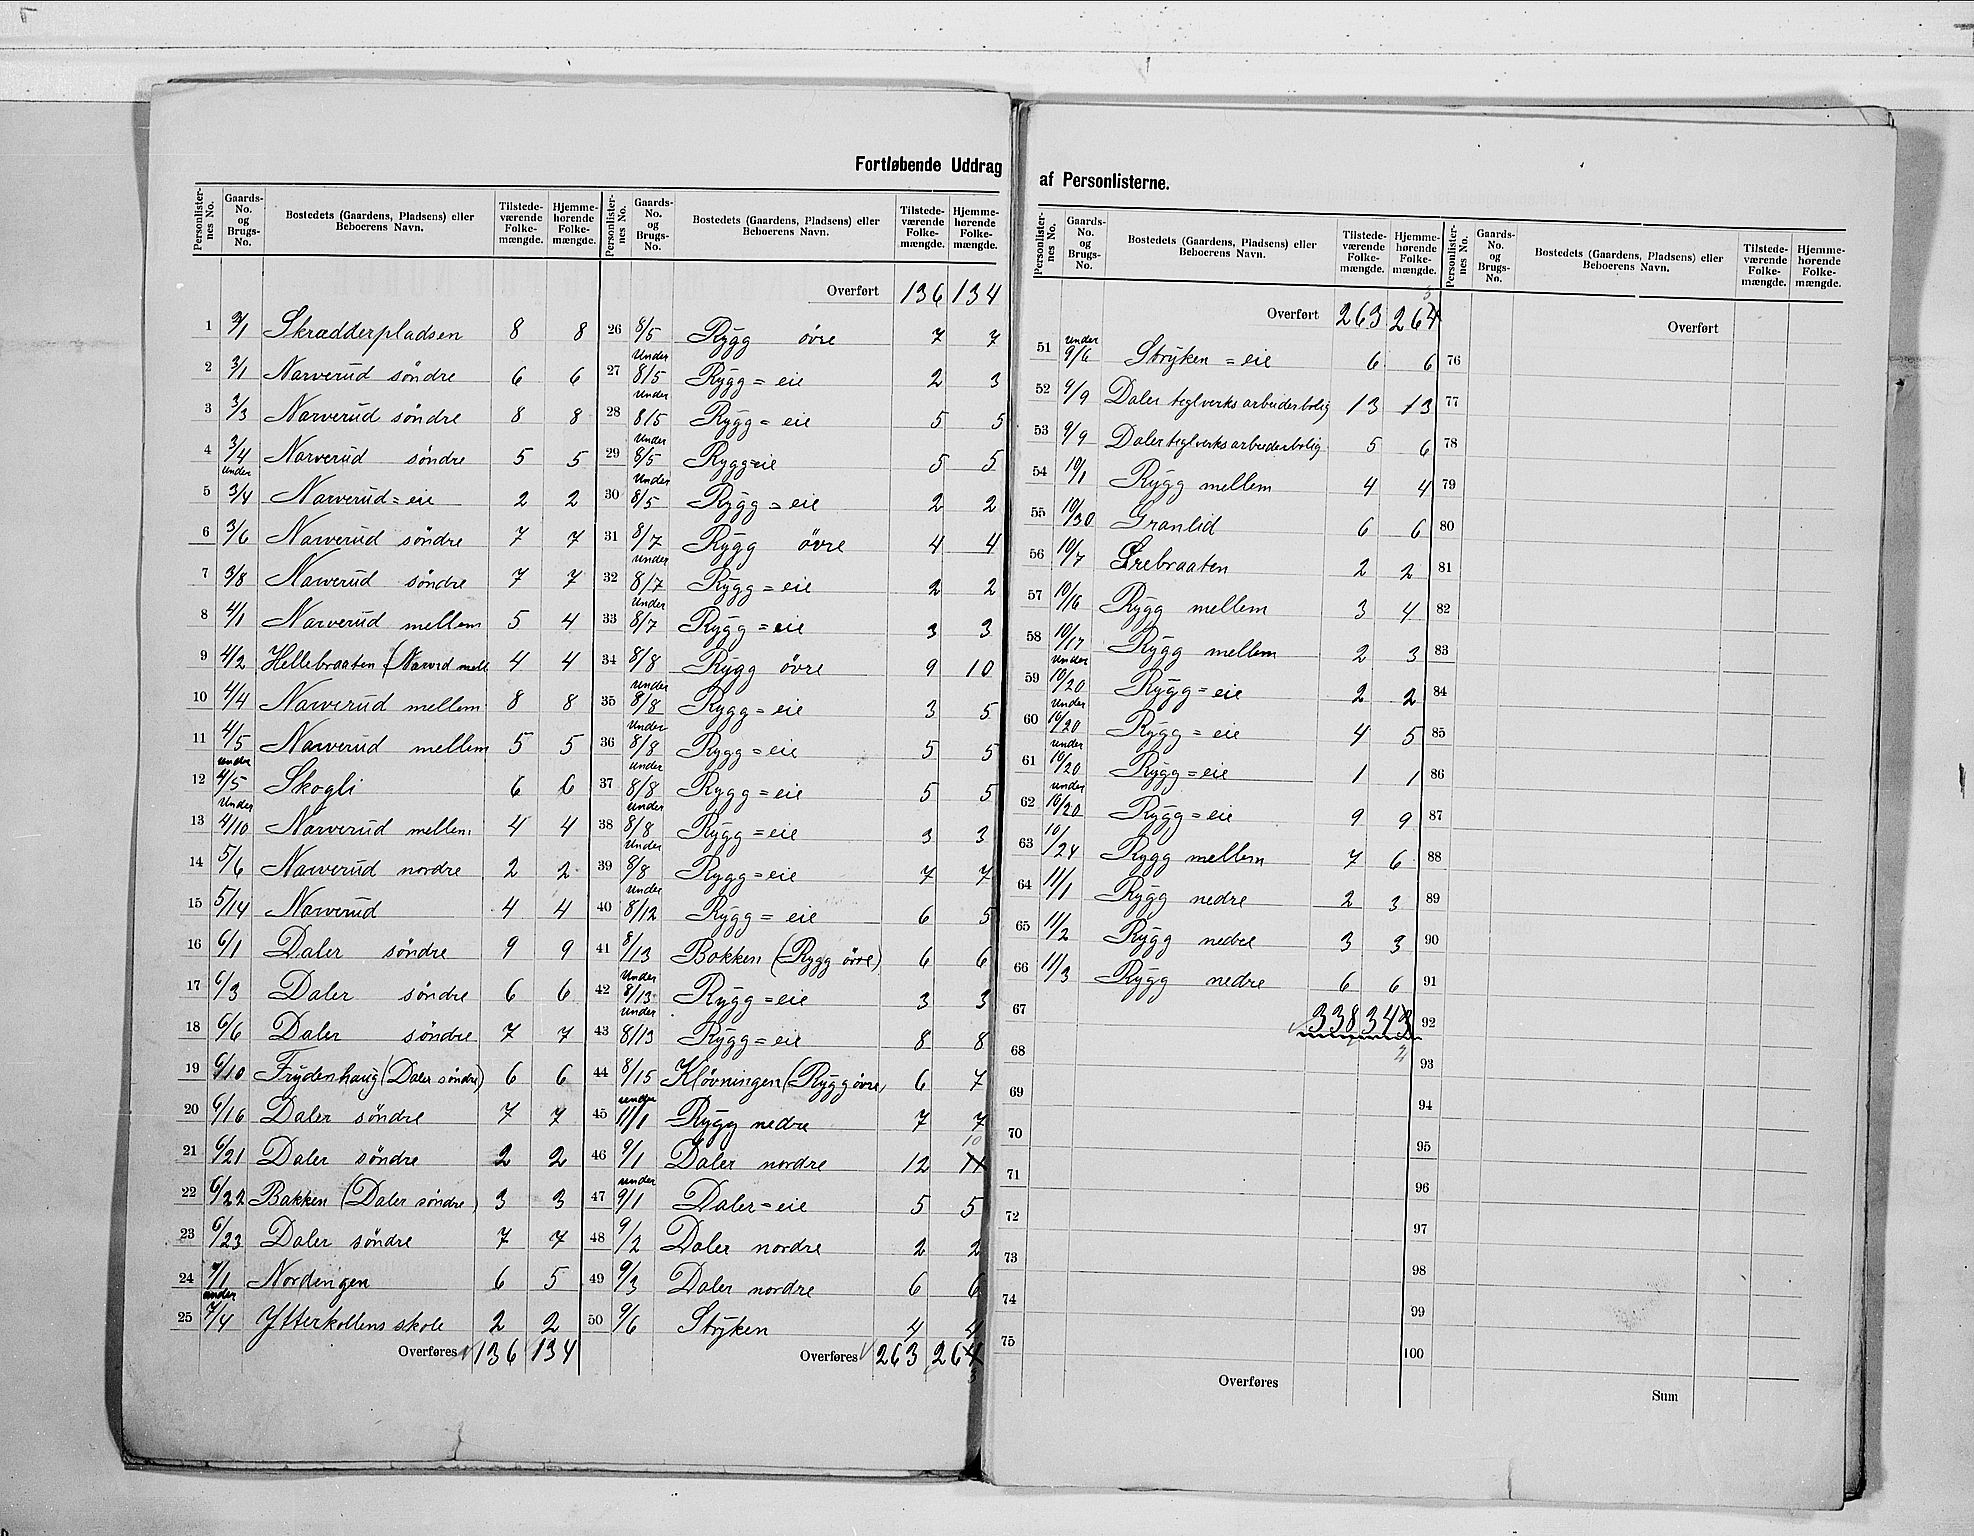 Fortløbende Uddrag af Personlisterne.
Personlister-nes No. | Gaards-No. og Brugs-No. | Bostedets (Gaardens, Pladsens) eller Beboerens Navn. | Tilstede-værende Folke-mængde. | Hjemme-hørende Folke-mængde.
1 3/1 Skrædderpladsen 8 8
2 3/1 Narverud söndre 6 6
3 3/3 Narverud söndre 8 8
4 3/4 Narverud söndre 5 5
5 under 3/4 Narverud=eie 2 2
6 3/6 Narverud söndre 7 7
7 3/8 Narverud söndre 7 7
8 4/1 Narverud mellem 5 4
9 4/2 Hellebraaten (Narv.d mell 4 4
10 4/4 Narverud mellem 8 8
11 4/5 Narverud mellem 5 5
12 under 4/5 Skogli 6 6
13 Under 4/10 Narverud mellem 4 4
14 5/6 Narverud nordre 2 2
15 5/14 Narverud 4 4
16 6/1 Daler söndre 9 9
17 6/3 Daler söndre 6 6
18 6/6 Daler söndre 7 7
19 6/10 Frydenhaug (Daler söndre) 6 6
20 6/16 Daler söndre 7 7
21 6/21 Daler söndre 2 2
22 6/22 Bakken (Daler söndre) 3 3
23 6/23 Daler söndre 7 7
24 7/1 Nordengen 6 5
25 under 7/4 Ytterkollens skole 2 2
Overføres 136 134
Personlister-nes No. | Gaards-No. og Brugs-No. | Bostedets (Gaardens, Pladsens) eller Beboerens Navn. | Tilstede-værende Folke-mængde. | Hjemme-hørende Folke-mængde.
Overført 136 134
26 8/5 Rygg övre 7 7
27 Under 8/5 Rygg=eie 2 3
28 Under 8/5 Rygg=eie 5 5
29 Under 8/5 Rygg=eie 5 5
30 Under 8/5 Rygg=eie 2 2
31 8/7 Rygg övre 4 4
32 under 8/7 Rygg=eie 2 2
33 Under 8/7 Rygg=eie 3 3
34 8/8 Rygg övre 9 10
35 under 8/8 Rygg=eie 3 5
36 under 8/8 Rygg=eie 5 5
37 under 8/8 Rygg=eie 5 5
38 under 8/8 Rygg=eie 3 3
39 Under 8/8 Rygg=eie 7 7
40 under 8/12 Rygg=eie 6 5
41 8/13 Bakken (Rygg övre) 6 6
42 Under 8/13 Rygg=eie 3 3
43 under 8/13 Rygg=eie 8 8
44 8/15 Klövningen (Rygg övre) 6 7
45 under 11/1 Rygg nedre 7 7
46 9/1 Daler nordre 12 11 10
47 under 9/1 Daler=eie 5 5
48 9/2 Daler nordre 2 2
49 9/3 Daler nordre 6 6
50 9/6 Stryken 4 4
Overføres 263 264 3
Personlister-nes No. | Gaards-No. og Brugs-No. | Bostedets (Gaardens, Pladsens) eller Beboerens Navn. | Tilstede-værende Folke-mængde. | Hjemme-hørende Folke-mængde.
Overført 263 264 3
51 under 9/6 Stryken=eie 6 6
52 9/9 Daler teglverks arbeiderbolig 13 13
53 9/9 Daler teglverks arbeiderbolig 5 6
54 10/1 Rygg mellem 4 4
55 10/30 Granlid 6 6
56 10/7 2 2
57 10/16 Rygg mellem 3 4
58 10/17 Rygg mellem 2 3
59 under 10/20 Rygg=eie 2 2
60 under 10/20 Rygg=eie 4 5
61 under 10/20 Rygg=eie 1 1
62 under 10/20 Rygg=eie 9 9
63 10/24 Rygg mellem 7 6
64 11/1 Rygg nedre 2 3
65 11/2 Rygg nedre 3 3
66 11/3 Rygg nedre 6 6
67 338 343 2
68
69
70
71
72
73
74
75
Overføres
Personlister-nes No. | Gaards-No. og Brugs-No. | Bostedets (Gaardens, Pladsens) eller Beboerens Navn. | Tilstede-værende Folke-mængde. | Hjemme-hørende Folke-mængde.
Overført
76
77
78
79
80
81
82
83
84
85
86
87
88
89
90
91
92
93
94
95
96
97
98
99
100
Sum